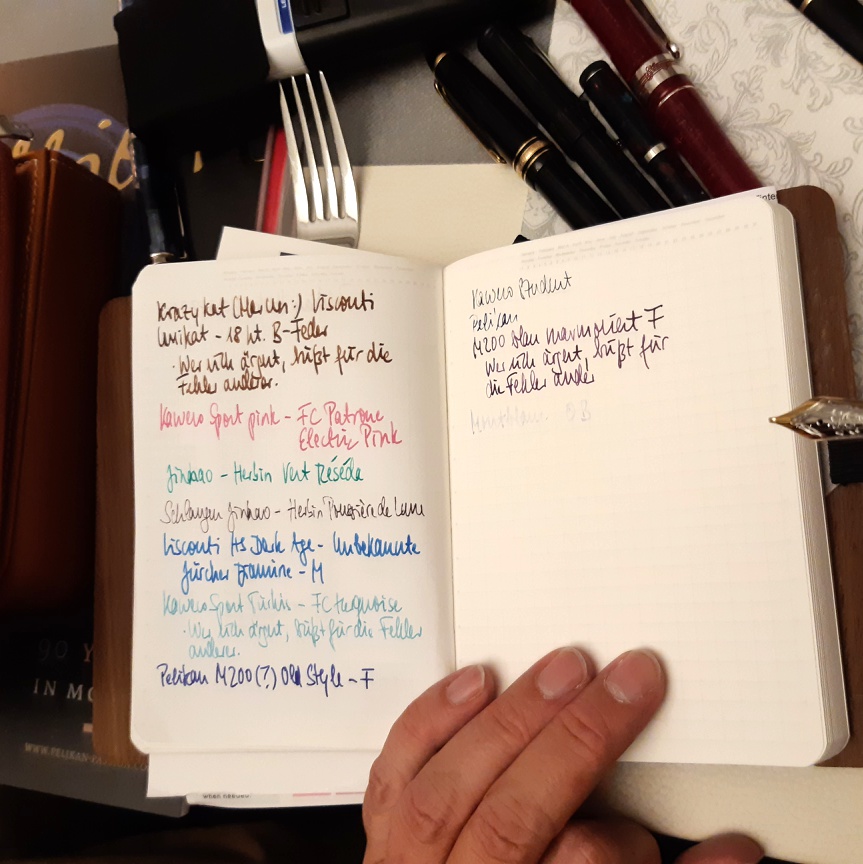 Krazykat (Marcus:) Visconti
Unikat - 18 kt. B-Feder
· Wer sich ärgert, büßt für die
Fehler anderer.
Kaweco Sport pink - FC Patrone
Electric Pink
Jinhao - Herbin Vert Réséda
Schlangen Jinhao - Herbin Poussière de Lune
Visconti HS Dark Age - Unbekannte
Zürcher - M
Kaweco Sport Türkis - FC turquoise
· Wer sich ärgert, büßt für die Fehler
anderer.
Pelikan M200(?) Old Style - F
Kaweco Student
Pelikan
M200 blau marmoriert F
Wer sich ärgert, büßt für
die Fehler ander
Montblanc
90 Y
IN MO
WWW.PELIKAN